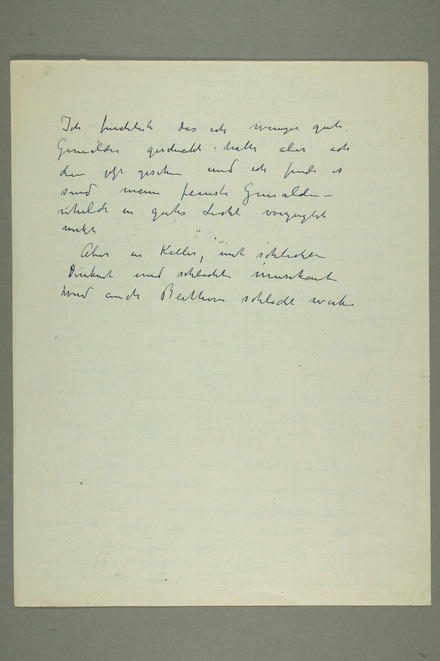 Ich fürchtete das ich weniger gute
Gemälde geschickt hatte aber ich
den oft gesehen und ich finde es
sind meine feinste Gemälde –
in gutes Licht vorzüglich
wirkt
Aber in Keller, mit schlechten
und schlechte musikant
wird auch Beethoven schlecht wirken